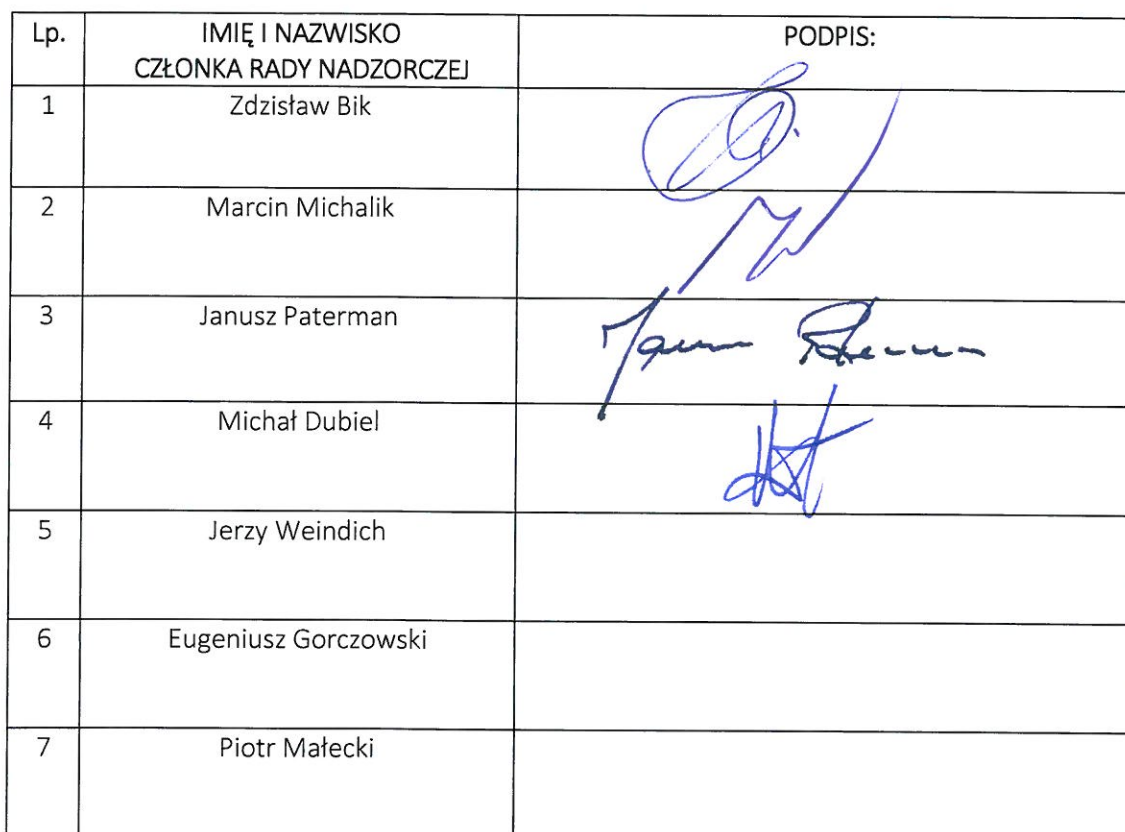 Lp.
IMIĘ I NAZWISKO
CZŁONKA RADY NADZORCZEJ
PODPIS:
1
Zdzisław Bik
2
Marcin Michalik
3
Janusz Paterman
4
Michał Dubiel
5
Jerzy Weindich
6
Eugeniusz Gorczowski
7
Piotr Małecki